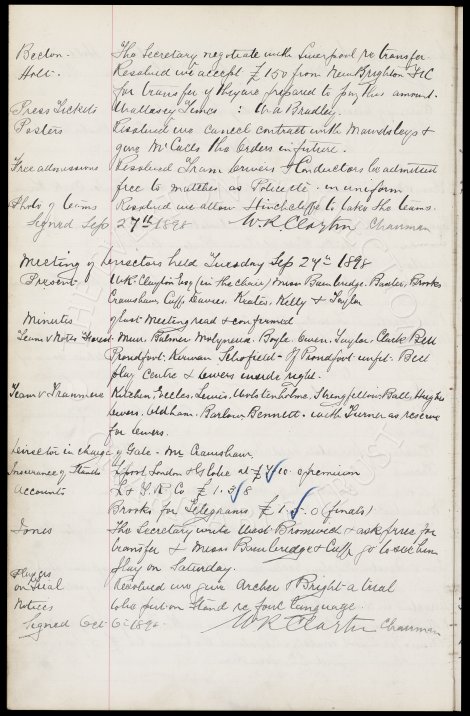 Becton. The Secretary negotiate with Liverpool re transfer
Holt. Resolved we accept £150 from New Brighton FC
for transfer if they are prepared to pay this amount.
Press Tickets Wallasey Times : W A Bradley.
Posters Resolved we cancel contract with Mawdsleys &
give McCalls the orders in future.
Free admissions Resolved Tram drivers & Conductors be admitted
free to matches as Police etc - in uniform
Photo of teams Resolved we allow Hinchcliffe to take the teams.
Signed Sep 27th 1898 W.R. Clayton Chairman
Meeting of Directors held Tuesday Sep 27th 1898
Present W.R. Clayton Esq (in the chair) Messrs Bainbridge, Baxter, Brooks
Cranshaw, Cuff, Davies, Keates, Kelly & Taylor
Minutes of last Meeting read & confirmed
Team v Notts Forest Muir, Balmer, Molyneux, Boyle, Owen, Taylor, Clark, Bell
Proudfoot, Kirwan, Schofield - If Proudfoot unfit Bell
play Centre & Divers inside right.
Team v Tranmere Kitchen, Eccles, Lewis, Wolstenholme, Stringfellow, Ball, Hughes
Divers, Oldham, Barlow, Bennett - with Turner as reserve
for Divers.
Director in charge of Gate - Mr Cranshaw.
Insurance of Stands L'pool London & Globe at premium
Accounts L & Y. R Co £1.3/8
Brooks for Telegrams £1.5.0 (finals)
Jones The Secretary write West Bromwich & ask price for
transfer & Messrs Bainbridge & Cuff go to see him
play on Saturday.
Players
on trial Resolved we give Archer & Bright a trial
Notices to be put on Stand re foul language.
Signed Oct 6 1898 W R Clayton Chairman